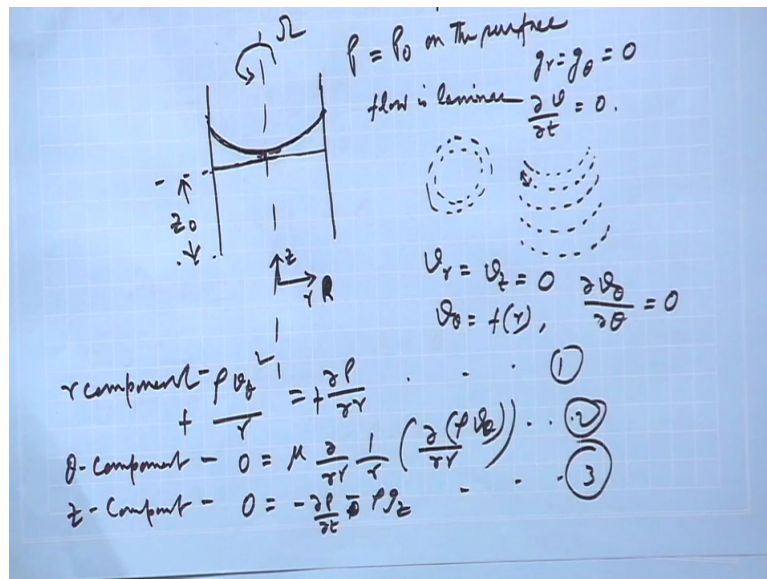 Ω
P = P0 on the surface
gr = gθ = 0
flow is laminar ∂v/∂t = 0.
z0
z
r R
vr = vz = 0
vθ = f(r), ∂vθ/∂θ = 0
r component - + ρvθ²/r = + ∂P/∂r . . . ①
θ-component - 0 = μ ∂/∂r 1/r (∂(rvθ)/∂r) . . ②
z-Compont - 0 = -∂P/∂z - ρgz . . . ③